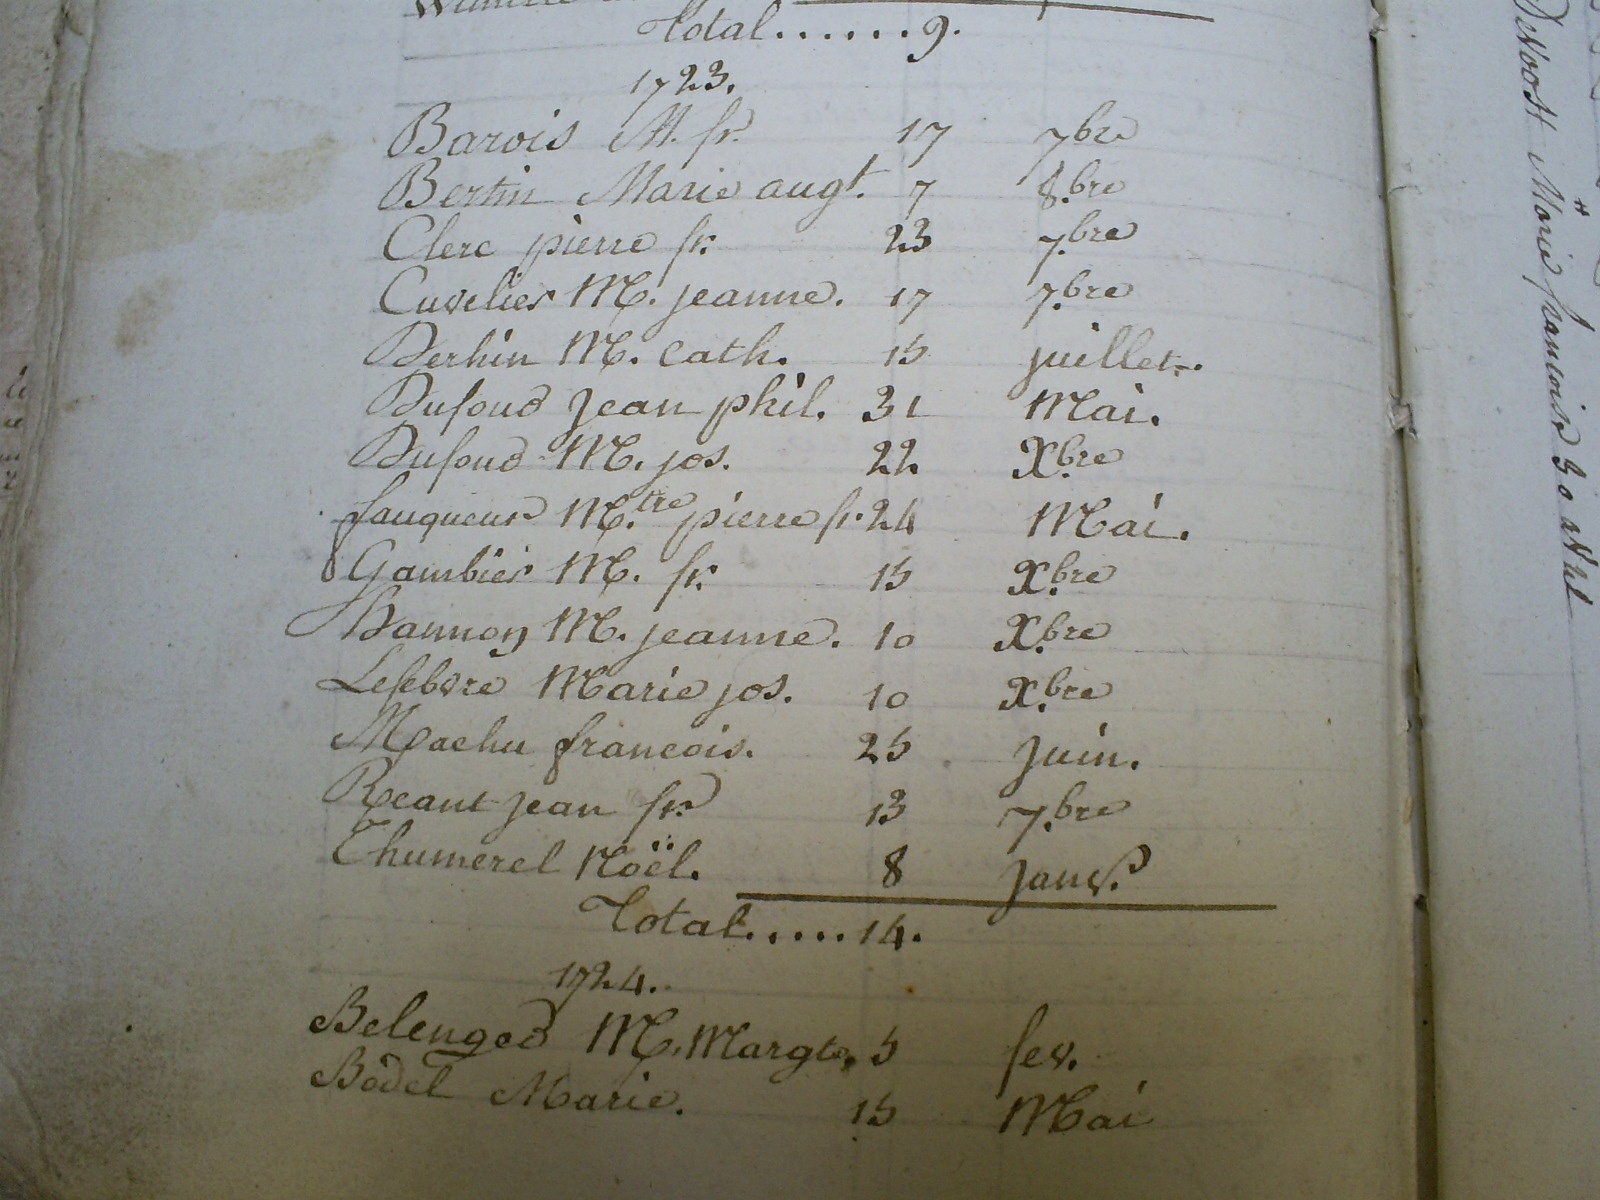 Total......9.
1723.
Barois M. fr. 17 7bre
Bertin Marie augt. 7 8.bre
Clerc pierre fr. 23 7.bre
Cuvelier M. jeanne. 17 7.bre
Derhin M. Cath. 15 juillet.
Dufour Jean phil. 31 Mai.
Dufour M. jos. 22 Xbre
fauqueur M.tre pierre fr. 24 Mai.
Gambier M. fr. 15 X.bre
Hannon M. jeanne. 10 X.bre
Lefebvre Marie jos. 10 X.bre
Machu francois. 25 Juin.
Reant Jean fr. 13 7.bre
Thumerel Noël. 8 Janv.r
Total.....14.
1724.
Belenger M. Margte. 5 fev.
Bodel Marie. 15 Mai
Marie francoise 30